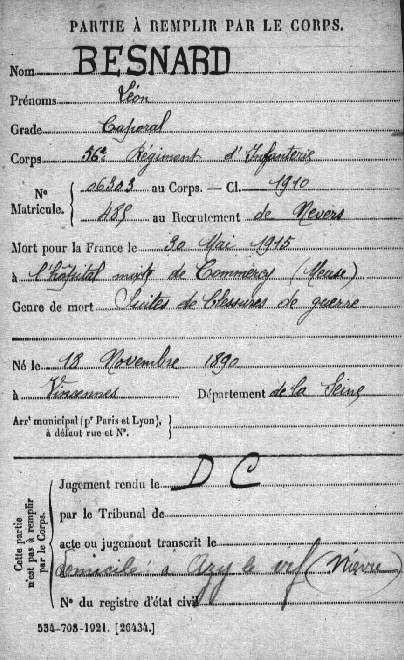 PARTIE À REMPLIR PAR LE CORPS.
Nom BESNARD
Prénoms Léon
Grade Caporal
Corps 56e Régiment d'Infanterie
No Matricule. { 06303 au Corps. — Cl. 1910
485 au Recrutement de Nevers
Mort pour la France le 30 Mai 1915
à l'hôpital mixte de Commercy (Meuse)
Genre de mort Suites de blessures de guerre
Né le 18 Novembre 1890
à Vincennes Département de la Seine
Arrt municipal (pr Paris et Lyon), à défaut rue et No. }
Cette partie n'est pas à remplir par le Corps.
Jugement rendu le D C
par le Tribunal de
acte ou jugement transcrit le
domicilié à Azy le vif (Nièvre)
No du registre d'état civil
534-708-1921. [26434.]